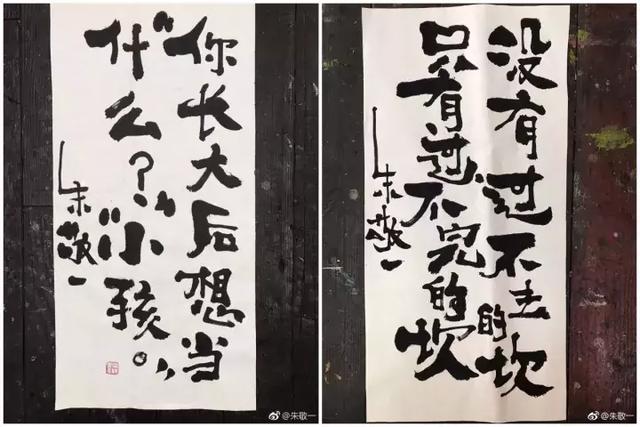 “你长大后想当
什么？”“小孩。”
朱敬一
没有过不去的坎
只有过不完的坎
朱敬一
@朱敬一
@朱敬一